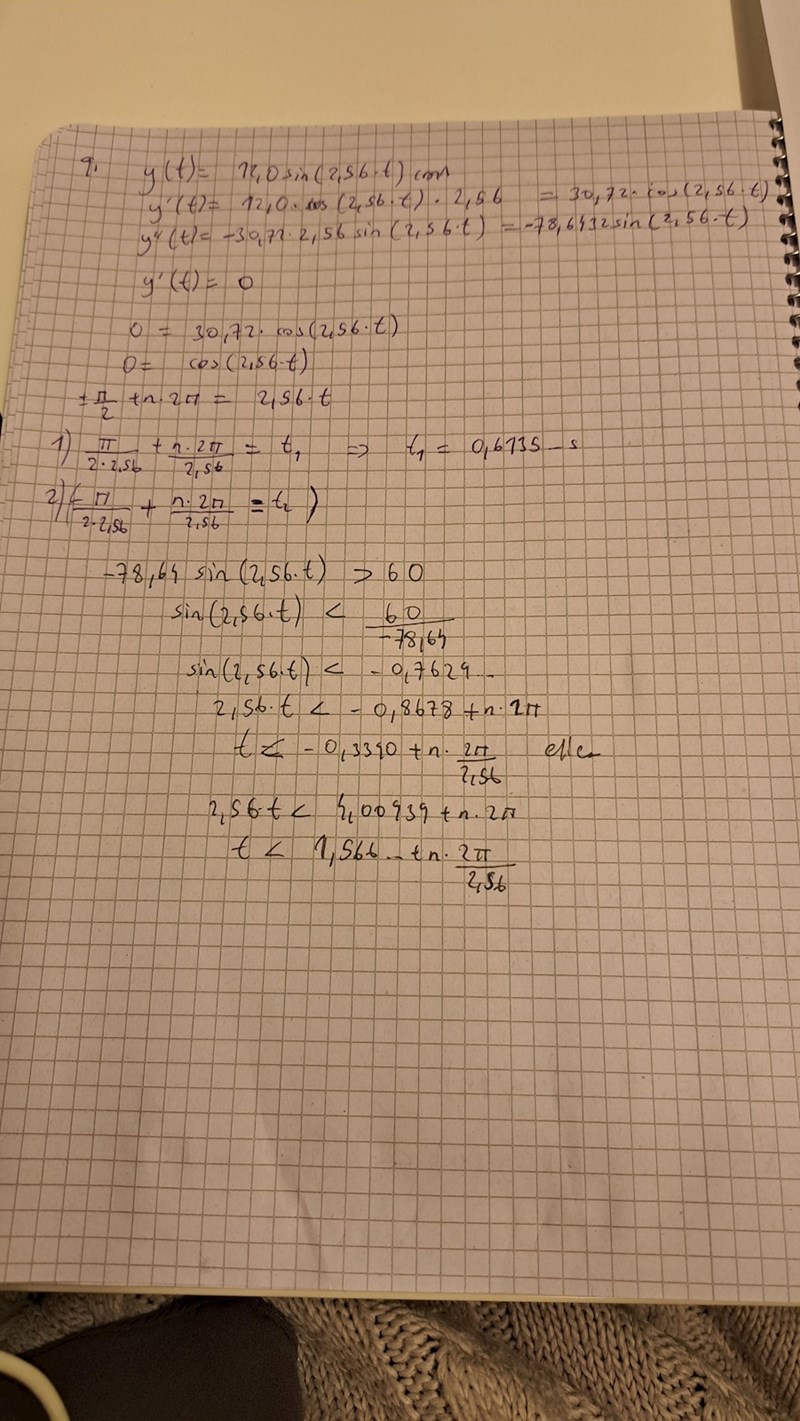 9. y(t) = 12,0 sin(2,56·t) cm
y'(t) = 12,0·cos(2,56·t)·2,56 = 30,72·cos(2,56·t)
y"(t) = -30,72·2,56 sin(2,56·t) = -78,6432 sin(2,56·t)
y'(t) = 0
0 = 30,72·cos(2,56·t)
0 = cos(2,56·t)
±π/2 + n·2π = 2,56·t
1) π/(2·2,56) + n·2π/2,56 = t₁ ⇒ t₁ = 0,6135... s
2) (-π/(2·2,56) + n·2π/2,56 = t₂)
-78,64 sin(2,56·t) > 60
sin(2,56·t) < 60/-78,64
sin(2,56·t) < -0,7629...
2,56·t < -0,8678 + n·2π
t < -0,3390 + n·2π/2,56 eller
2,56·t < 4,00939 + n·2π
t < 1,566... + n·2π/2,56